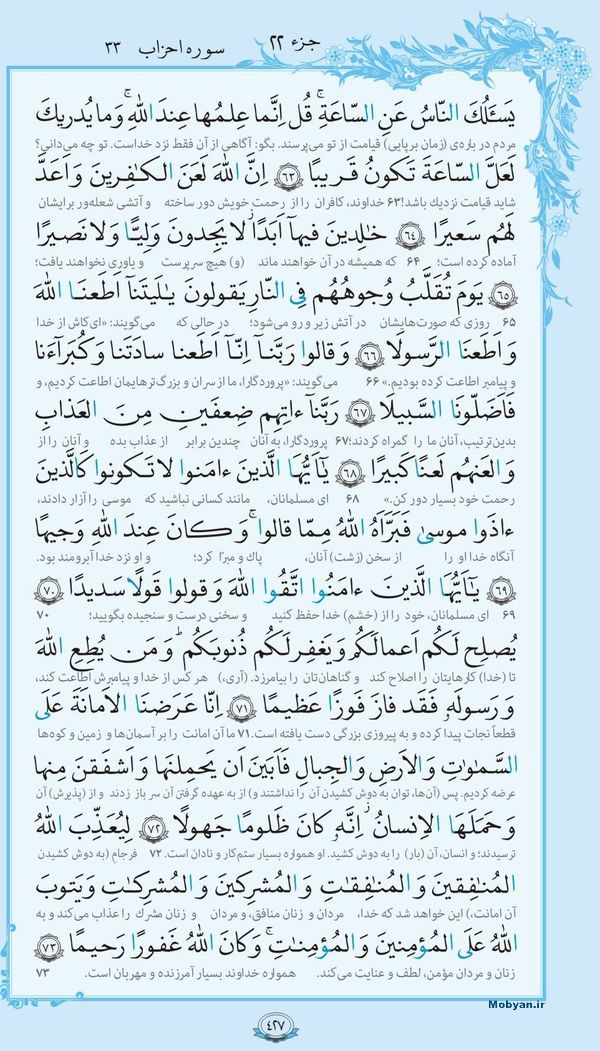 جزء ۲۲ سوره احزاب ۳۳
يَسـَٔلُكَ النّاسُ عَنِ السّاعَةِ ۖ قُل اِنَّما عِلمُها عِندَ اللّٰهِ ۚ وَما يُدريكَ
مردم در باره‌ی (زمان برپایی) قیامت از تو می‌پرسند. بگو: آگاهی از آن فقط نزد خداست. تو چه می‌دانی؟
لَعَلَّ السّاعَةَ تَكونُ قَريبًا ﴿٦٣﴾ اِنَّ اللّٰهَ لَعَنَ الكٰفِرينَ وَاَعَدَّ
شاید قیامت نزدیك باشد! ۶۳ خداوند، کافران را از رحمت خویش دور ساخته و آتشی شعله‌ور برایشان
لَهُم سَعيرًا ﴿٦٤﴾ خٰلِدينَ فيهآ اَبَدًا ۖ لا يَجِدونَ وَلِيًّا وَلا نَصيرًا
آماده کرده است؛ ۶۴ که همیشه در آن خواهند ماند (و) هیچ سرپرست و یاوری نخواهند یافت؛
﴿٦٥﴾ يَومَ تُقَلَّبُ وُجوهُهُم فِى النّارِ يَقولونَ يٰلَيتَنآ اَطَعنَا اللّٰهَ
۶۵ روزی که صورت‌هایشان در آتش زیر و رو می‌شود؛ در حالی که می‌گویند: «ای‌کاش از خدا
وَاَطَعنَا الرَّسولَا ﴿٦٦﴾ وَقالوا رَبَّنآ اِنّآ اَطَعنا سادَتَنا وَكُبَرآءَنا
و پیامبر اطاعت کرده بودیم.» ۶۶ می‌گویند: «پروردگارا، ما از سران و بزرگ‌ترهایمان اطاعت کردیم، و
فَاَضَلّونَا السَّبيلَا ﴿٦٧﴾ رَبَّنآ ءاتِهِم ضِعفَينِ مِنَ العَذابِ
بدین‌ترتیب، آنان ما را گمراه کردند؛ ۶۷ پروردگارا، به آنان چندین برابر از عذاب بده و آنان را از
وَالعَنهُم لَعنًا كَبيرًا ﴿٦٨﴾ يٰٓاَيُّهَا الَّذينَ ءامَنوا لا تَكونوا كَالَّذينَ
رحمت خود بسیار دور کن.» ۶۸ ای مسلمانان، مانند کسانی نباشید که موسی را آزار دادند،
ءاذَوا موسىٰ فَبَرَّاَهُ اللّٰهُ مِمّا قالوا ۚ وَكانَ عِندَ اللّٰهِ وَجيهًا
آنگاه خدا او را از سخن (زشت) آنان، پاك و مبرّا کرد؛ و او نزد خدا آبرومند بود.
﴿٦٩﴾ يٰٓاَيُّهَا الَّذينَ ءامَنُوا اتَّقُوا اللّٰهَ وَقولوا قَولًا سَديدًا ﴿٧٠﴾
۶۹ ای مسلمانان، خود را از (خشم) خدا حفظ کنید و سخنی درست و سنجیده بگویید؛ ۷۰
يُصلِح لَكُم اَعمالَكُم وَيَغفِر لَكُم ذُنوبَكُم ۗ وَمَن يُطِعِ اللّٰهَ
تا (خدا) کارهایتان را اصلاح کند و گناهان‌تان را بیامرزد. (آری،) هر کس از خدا و پیامبرش اطاعت کند،
وَرَسولَهٗ فَقَد فازَ فَوزًا عَظيمًا ﴿٧١﴾ اِنّا عَرَضنَا الاَمانَةَ عَلَى
قطعاً نجات پیدا کرده و به پیروزی بزرگی دست یافته است. ۷۱ ما آن امانت را بر آسمان‌ها و زمین و کوه‌ها
السَّمٰوٰتِ وَالاَرضِ وَالجِبالِ فَاَبَينَ اَن يَحمِلنَها وَاَشفَقنَ مِنها
عرضه کردیم. پس (آن‌ها، توان به دوش کشیدن آن را نداشتند و) از به عهده گرفتن آن سر باز زدند و از (پذیرش) آن
وَحَمَلَهَا الاِنسانُ ۖ اِنَّهٗ كانَ ظَلومًا جَهولًا ﴿٧٢﴾ لِيُعَذِّبَ اللّٰهُ
ترسیدند؛ و انسان، آن (بار) را به دوش کشید. او همواره بسیار ستم‌کار و نادان است. ۷۲ فرجامِ (به دوش کشیدن
المُنٰفِقينَ وَالمُنٰفِقٰتِ وَالمُشرِكينَ وَالمُشرِكٰتِ وَيَتوبَ
آن امانت،) این خواهد شد که خدا، مردان و زنان منافق، و مردان و زنان مشرك را عذاب می‌کند و به
اللّٰهُ عَلَى المُؤمِنينَ وَالمُؤمِنٰتِ ۗ وَكانَ اللّٰهُ غَفورًا رَحيمًا ﴿٧٣﴾
زنان و مردان مؤمن، لطف و عنایت می‌کند. همواره خداوند بسیار آمرزنده و مهربان است. ۷۳
Mobyan.ir
۴۲۷